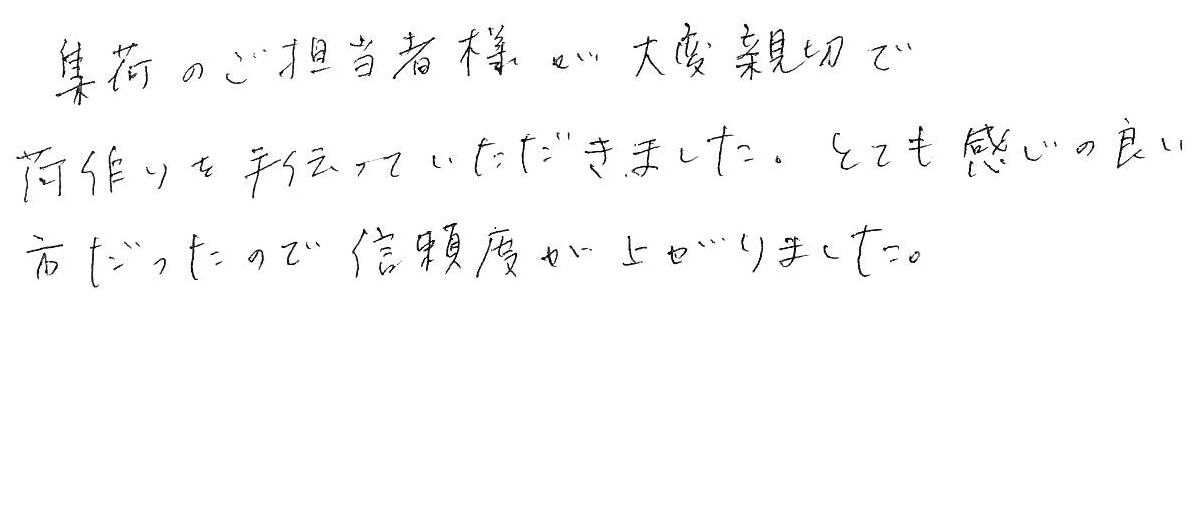 集荷のご担当者様が大変親切で
荷作りを手伝っていただきました。とても感じの良い
方だったので信頼度が上がりました。